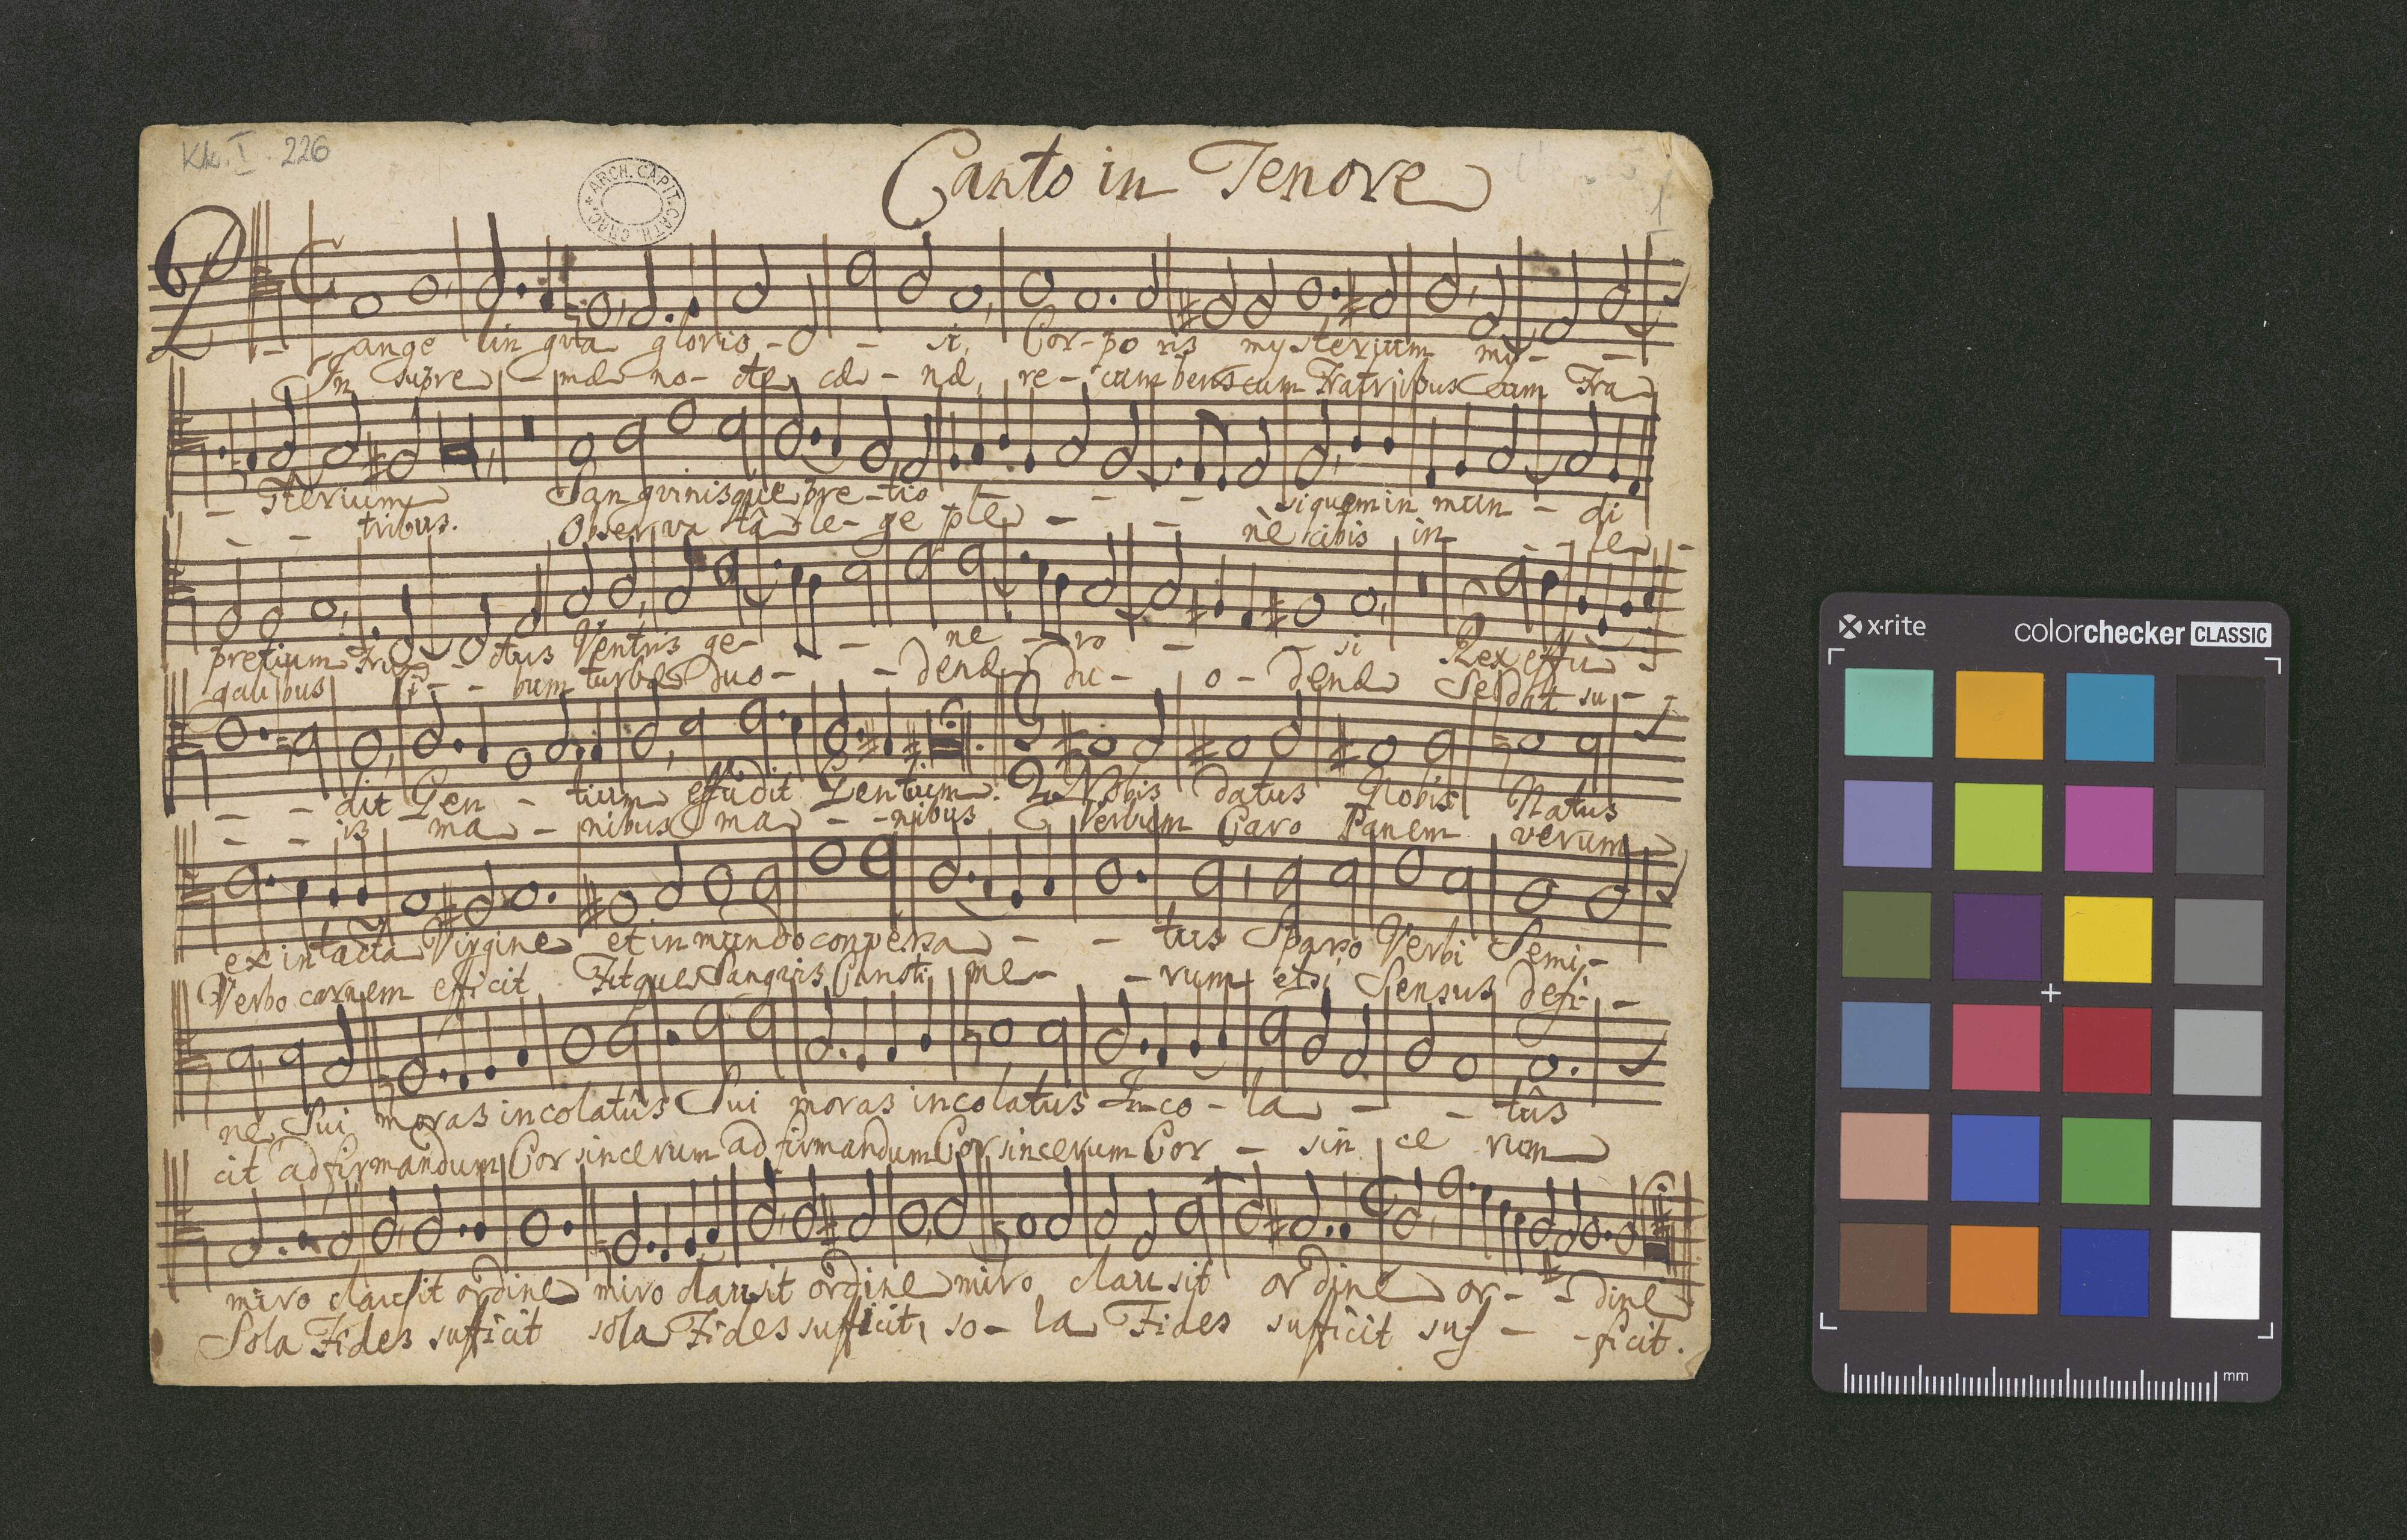 Kk. I. 226
ARCH. CAPIT. CATH. CRAC.
Canto in Tenore
1
Pange lingva glorio - - si, Cor-po ris mysterium my - -
In supre - mæ no- cte cæ - næ, re - cumbens cum Fratribus Cum Fra
- sterium Sangvinisque pre-tio - - - si quem in mun - di
- - tribus. Observa tâ le- ge ple - - nè cibis in - - le -
pretium Fru - ctus Ventris ge- - ne - ro - si Rex effu -
galibus Ci - - bum turbæ duo- - denæ du - o - denæ Se dat su - -
- - dit Gen - tium effudit Gentium. 2. Nobis datus Nobis Natus
- - is ma - nibus ma - - nibus Verbum Caro Panem verum
ex intacta Virgine et in mundo conversa - - tus Sparso Verbi Semi -
Verbo carnem efficit Fitque Sangvis Christi me - - rum etsi Sensus defi - -
ne, Sui moras incolatûs Sui moras incolatus In-co - la - - tûs
cit ad firmandum Cor sincerum ad firmandum Cor sincerum Cor - sin ce rum
miro clausit ordine miro clausit ordine miro clausit ordine or - - dine
Sola Fides sufficit sola Fides sufficit, so - la Fides sufficit suf - - ficit.
x-rite
colorchecker CLASSIC
mm